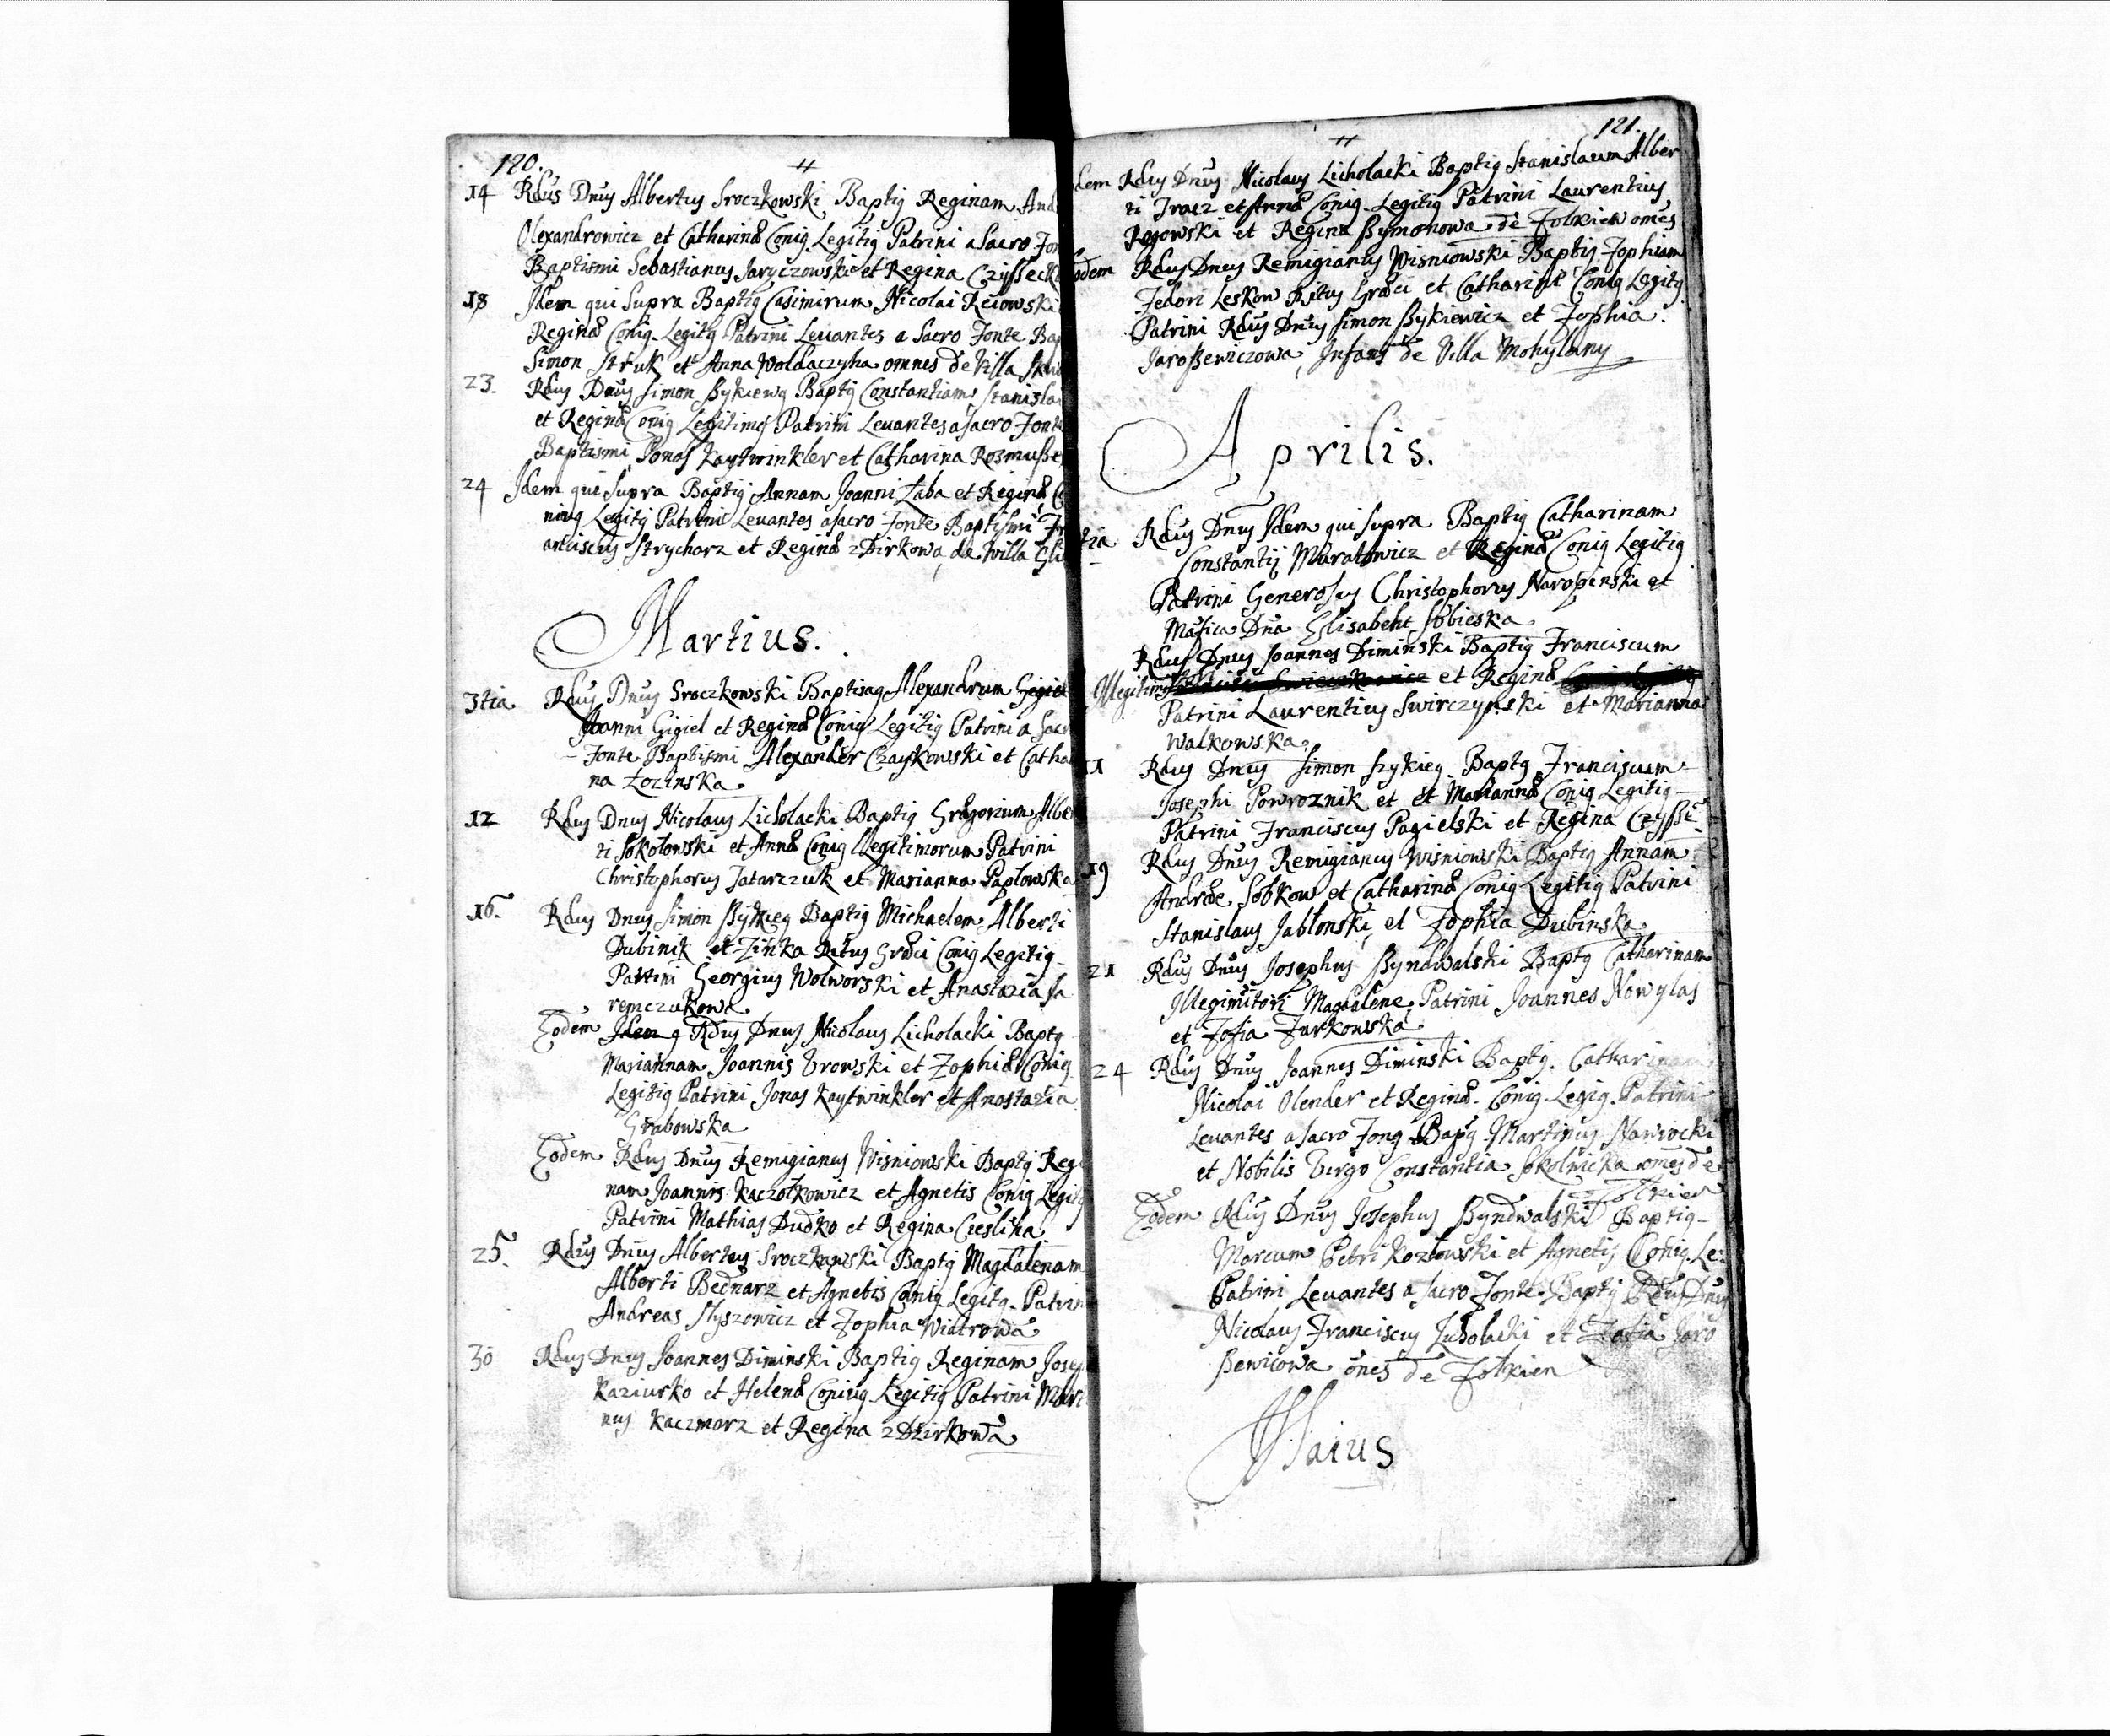 120.
14 Rdus Dnus Albertus Sroczkowski Baptiq Reginam And
Olexandrowicz et Catharinæ Coniq Legitiq Patrini a Sacro Fon
Baptismi Sebastianus Jaryczowski et Regina Czyßeck
18 Idem qui Supra Baptiq Casimirum Nicolai Reiowski
Reginæ Coniq Legitq Patrini Leuantes a Sacro Fonte Bap
Simon Struk et Anna Woldaczyha omnes de Villa
23. Rdus Dnus Simon Bykiewq Baptq Constantiam Stanislai
et Reginæ Coniq Legitimoq Patrini Leuantes a Sacro Fonte
Baptismi Jonas Kaytwinkler et Catharina
24 Idem qui Supra Baptiq Annam Joanni Zaba et Reginæ Co
niuq Legitq Patrini Leuantes a Sacro Fonte Baptismi Fr
anciscus Strycharz et Regina zDzirkowa de Willa
Martius.
3tia Rdus Dnus Sroczkowski Baptisaq Alexandrum Gigiel
Joanni Gigiel et Reginæ Coniq Legitiq Patrini a Sacr
Fonte Baptismi Alexander Czaykowski et Catha
na Łozinska
12 Rdus Dnus Nicolaus Licholacki Baptiq Gregorium Alber
ti Sokołowski et Annæ Coniq Legitimorum Patrini
Christophorus Tatarczuk et Marianna Pawlowska
16. Rdus Dnus Simon Bykieq Baptiq Michaelem Alberti
Dubinik et Zinka Ritus Græci Coniq Legitiq
Patrini Georgius Wolworski et Anastazia Ja
remczukowa
Eodem Idem q Rdus Dnus Nicolaus Licholacki Baptq
Mariannam Joannis Urowski et Zophiæ Coniq
Legitiq Patrini Jonas Kaytwinkler et Anastazia
Grabowska
Eodem Rdus Dnus Remigianus Wisniowski Baptq Regi
nam Joannis Kaczołkowicz et Agnetis Coniq Legitq
Patrini Mathias Dudko et Regina Cieslina
25. Rdus Dnus Albertus Sroczkowski Baptq Magdalenam
Alberti Bednarz et Agnetis Coniq Legitq Patrin
Andreas Ilyszowicz et Zophia Wiatrowa
30 Rdus Dnus Joannes Diminski Baptiq Reginam Josep
Kaziurko et Helenæ Coniuq Legitiq Patrini Marti
nus Kaczmarz et Regina zDzirkowa
121.
dem Rdus Dnus Nicolaus Licholacki Baptiq Stanislaum Alber
ti Tracz et Annæ Coniq Legitiq Patrini Laurentius
Rogowski et Regina Bymonowa de Zolkiew omes
odem Rdus Dnus Remigianus Wisniowski Baptis Zophiam
Fedori Leskow Ritus Græci et Catharinæ Coniq Legitq
Patrini Rdus Dnus Simon Bykiewicz et Zophia
Jaroßewiczowa, Infans de Villa Mohylany
Aprilis.
tia Rdus Dnus Idem qui Supra Baptiq Catharinam
Constantij Muratowicz et Reginæ Coniq Legitiq
Patrini Generosus Christophorus Naropinski et
Mafica Dna Elisabeht Sobieska
Rdus Dnus Joannes Diminski Baptiq Franciscum
Illegitim et Reginæ
Patrini Laurentius Swirczynski et Marianna
Walkowska
11 Rdus Dnus Simon Szykieq Baptq Franciscum
Josephi Powroznik et et Mariannæ Coniq Legitiq
Patrini Franciscus Pagielski et Regina Czyßc
19 Rdus Dnus Remigianus Wisniowski Baptiq Annam
Andræ Sobkow et Catharinæ Coniq Legitiq Patrini
Stanislaus Jablonski et Zophia Dubinska
21 Rdus Dnus Josephus Byndwalski Baptq Catharinam
Illegimitori Magdalene, Patrini Joannes Nowylas
et Zofia Zurkowska
24 Rdus Dnus Joannes Diminski Baptq. Catharinam
Nicolai Olender et Reginæ. Coniq. Legiq. Patrini
Leuantes a Sacro Fonq Bapq Martinus Nawrocki
et Nobilis Virgo Constantia Sokolnicka omes de
Zolkiew
Eodem Rdus Dnus Josephus Byndwalski Baptiq
Marcum Petri Kozłowski et Agnetis Coniq Le:
Patrini Leuantes a Sacro Fonte Baptq Rdus Dnus
Nicolaus Franciscus Licholacki et Zofia Jaro
ßewicowa ones de Zolkiew
Maius